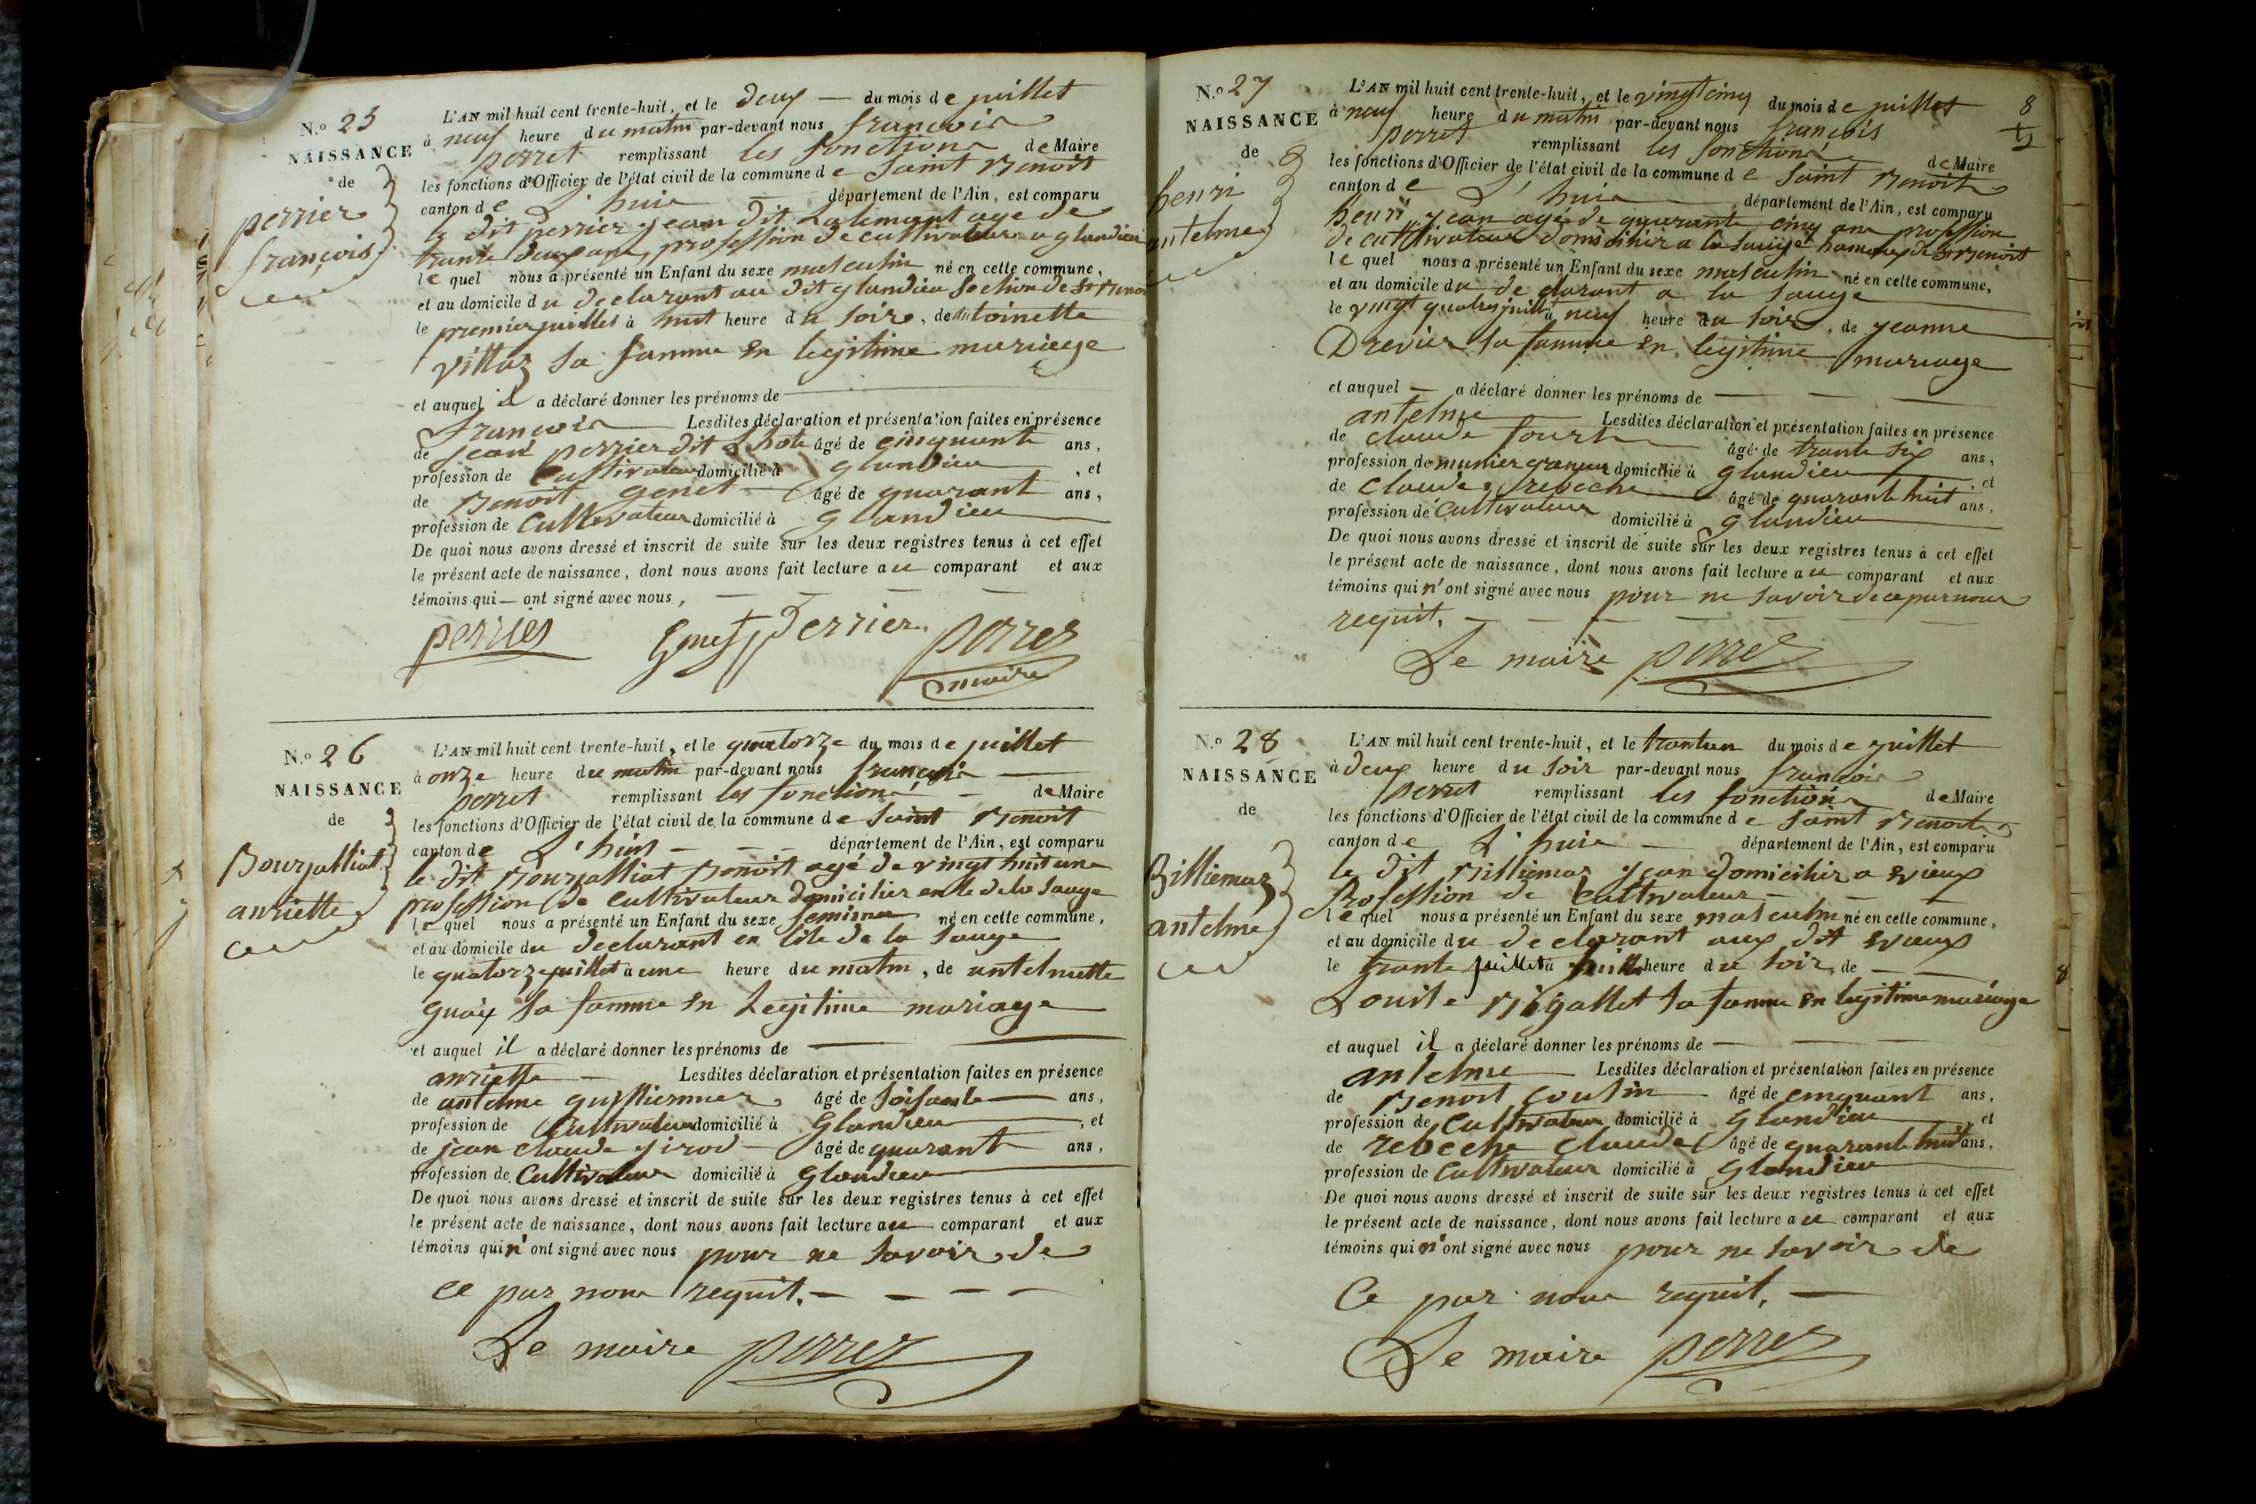 N.o 25
NAISSANCE
de
perrier
françois
L'AN mil huit cent trente-huit, et le deux du mois de juillet
à neuf heure du matin par-devant nous françois
perret remplissant les fonctions de Maire
les fonctions d'Officier de l'état civil de la commune de saint Benoit
canton de L'huis département de l'Ain, est comparu
le dit perrier jean dit agé de
trante deux ans, profession de cultivateur a glandieu
lequel nous a présenté un Enfant du sexe masculin né en cette commune,
et au domicile du declarant au dit glandieu section de St Benoit
le premier juillet à huit heure du soir, de antoinette
vittoz sa famme en legitime mariage
et auquel il a déclaré donner les prénoms de
françois Lesdites déclaration et présentation faites en présence
de jean perrier dit L'hote âgé de cinquante ans,
profession de Cultivateur domicilié à glandieu, et
de Benoit genet âgé de quarant ans,
profession de Cultivateur domicilié à glandieu
De quoi nous avons dressé et inscrit de suite sur les deux registres tenus à cet effet
le présent acte de naissance, dont nous avons fait lecture au comparant et aux
témoins qui ont signé avec nous,
perrier Genet perrier perret
maire
N.o 26
NAISSANCE
de
Bourjalliat
anriette
L'AN mil huit cent trente-huit, et le quatorze du mois de juillet
à onze heure du matin par-devant nous françois
perret remplissant les fonctions de Maire
les fonctions d'Officier de l'état civil de la commune de saint Benoit
canton de L'huis département de l'Ain, est comparu
le dit Bourjalliat Benoit agé de vingt huit ans
profession de cultivateur domicilier en de la sauge
lequel nous a présenté un Enfant du sexe feminin né en cette commune,
et au domicile du declarant en lile de la sauge
le quatorze juillet à une heure du matin, de antelmette
guaix sa famme en Legitime mariage
et auquel il a déclaré donner les prénoms de
anriette Lesdites déclaration et présentation faites en présence
de antelme guilliermier âgé de soisante ans,
profession de Cultivateur domicilié à Glandieu, et
de jean claude girod âgé de quarant ans,
profession de Cultivateur domicilié à Glandieu
De quoi nous avons dressé et inscrit de suite sur les deux registres tenus à cet effet
le présent acte de naissance, dont nous avons fait lecture au comparant et aux
témoins qui n'ont signé avec nous pour ne savoir de
ce par nous requit.
Le maire perret
8
N.o 27
NAISSANCE
de
henri
antelme
L'AN mil huit cent trente-huit, et le vingt cinq du mois de juillet
à neuf heure du matin par-devant nous françois
perret remplissant les fonctions de Maire
les fonctions d'Officier de l'état civil de la commune de saint Benoit
canton de L'huis département de l'Ain, est comparu
henri jean agé de quarante cinq ans profession
de cultivateur domicilier a la sauge hameaux de St Benoit
lequel nous a présenté un Enfant du sexe masculin né en cette commune,
et au domicile du declarant a la sauge
le vingt quatres juillet à neuf heure du soir, de jeanne
Drevier sa famme en legitime mariage
et auquel a déclaré donner les prénoms de
antelme Lesdites déclaration et présentation faites en présence
de claude âgé de trante six ans,
profession de munier domicilié à glandieu, et
de Claude rebeche âgé de quarant huit ans,
profession de Cultivateur domicilié à glandieu
De quoi nous avons dressé et inscrit de suite sur les deux registres tenus à cet effet
le présent acte de naissance, dont nous avons fait lecture au comparant et aux
témoins qui n'ont signé avec nous pour ne savoir de ce par nous
requit.
Le maire perret
N.o 28
NAISSANCE
de
Billiemaz
antelme
L'AN mil huit cent trente-huit, et le trantun du mois de juillet
à deux heure du soir par-devant nous françois
perret remplissant les fonctions de Maire
les fonctions d'Officier de l'état civil de la commune de saint Benoit
canton de L'huis département de l'Ain, est comparu
le dit Billiemaz jean domicilier a evieux
Profession de Cultivateur
lequel nous a présenté un Enfant du sexe masculin né en cette commune,
et au domicile du declarant aux dit evieux
le trante juillet à huit heure du soir, de
Louise Bigallet sa famme en legitime mariage
et auquel il a déclaré donner les prénoms de
antelme Lesdites déclaration et présentation faites en présence
de Benoit Cousin âgé de cinquant ans,
profession de Cultivateur domicilié à Glandieu, et
de rebeche Claude âgé de quarant huit ans,
profession de Cultivateur domicilié à Glandieu
De quoi nous avons dressé et inscrit de suite sur les deux registres tenus à cet effet
le présent acte de naissance, dont nous avons fait lecture au comparant et aux
témoins qui n'ont signé avec nous pour ne savoir de
Ce par nous requit.
Le maire perret